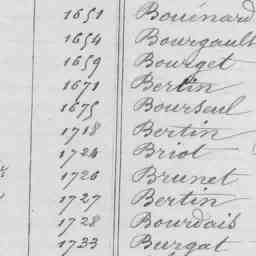 1651 Bouénard
1654 Bourgault
1659 Bourget
1671 Bertin
1675 Bourseul
1718 Bertin
1724 Briot
1726 Brunet
1727 Bertin
1728 Bourdais
1733 Burgat